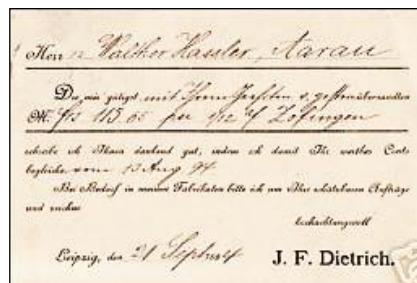 Herrn Walther Hassler, Aarau
Die mir gütigst mit Ihrem Gechrten v. gestern übersandten
M. 113.65 per 9/12 a/ Zofingen
schreibe ich Ihnen dankend gut, indem ich damit Ihr werthes Conto
begleiche vom 13 Aug 94
Bei Bedarf in meinen Fabrikaten bitte ich um Ihre schätzbaren Aufträge
und zeichne
hochachtungsvoll
Leipzig, den 21 Septbr 94
J. F. Dietrich.